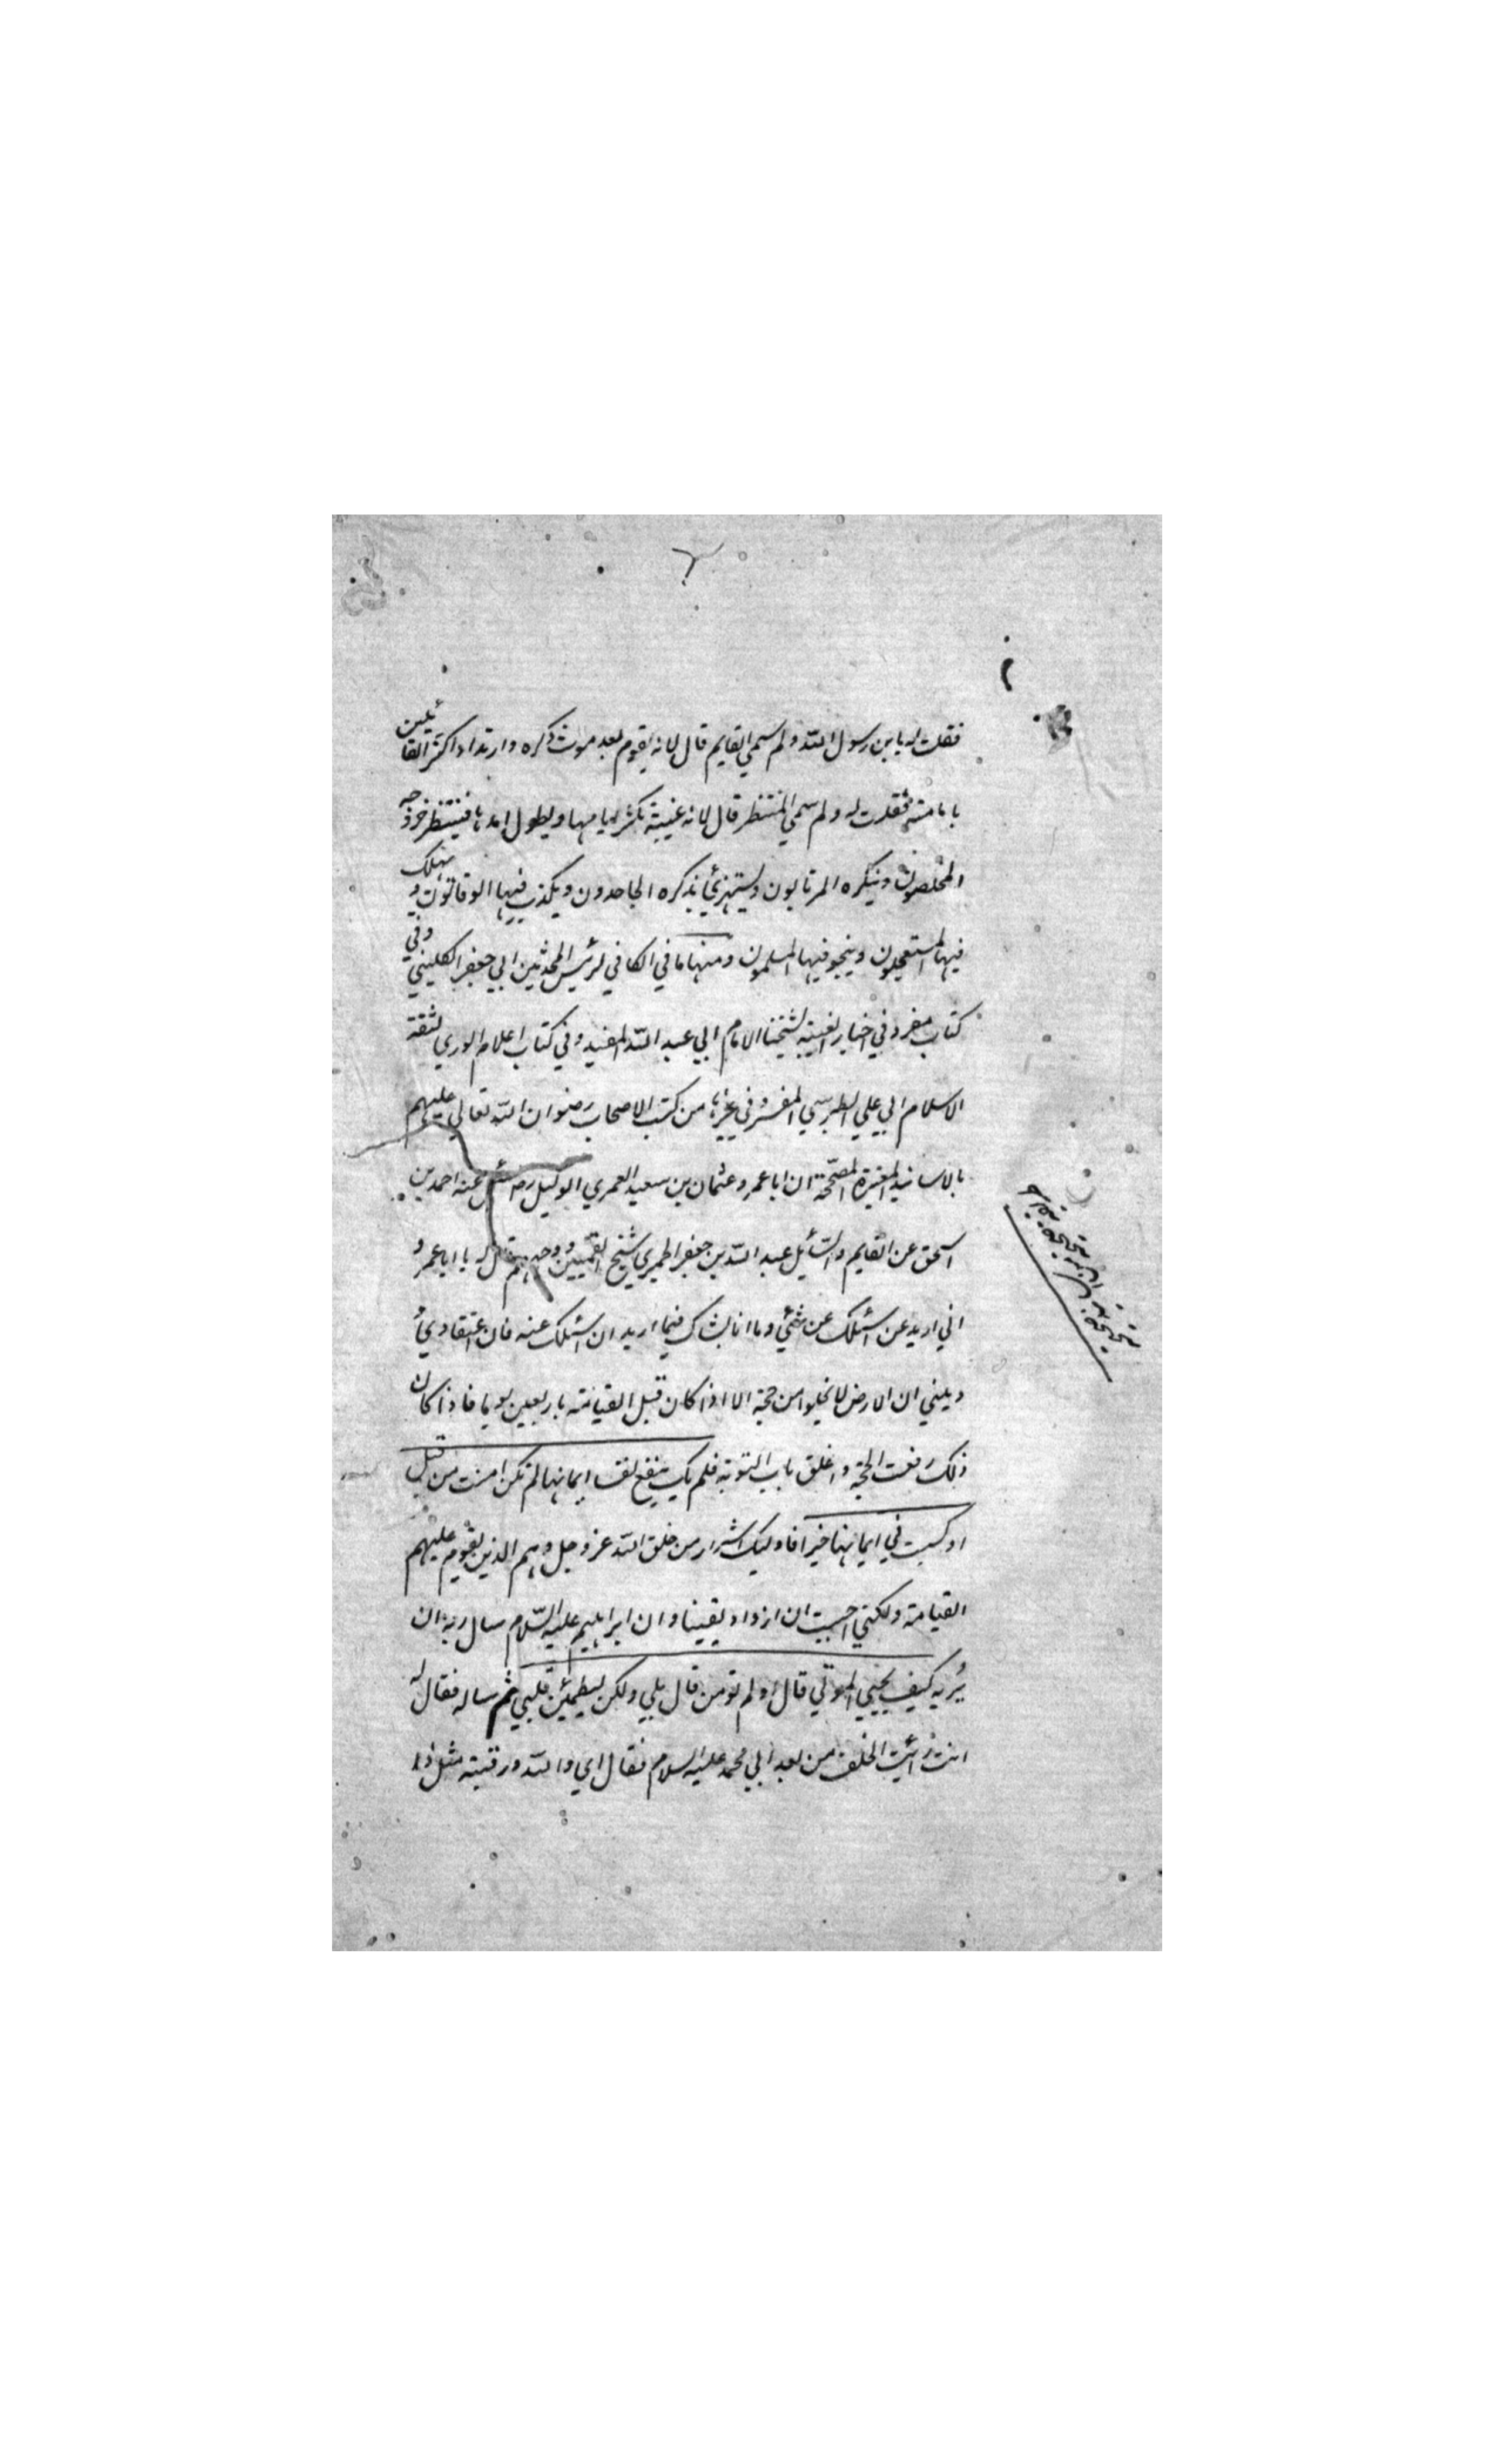 فقلت له يا بن رسول الله ولم سمي القايم قال لانه يقوم بعد موت ذكره وارتداد اكثر القائلين
بامامته فقلت له ولم سمي المنتظر قال لانه غيبة تكثر ايامها ويطول امدها فينتظر خروجه
المخلصون وينكره المرتابون ويستهزئ بذكره الجاحدون ويكذب فيها الوقاتون ويهلك
فيها المستعجلون وينجو فيها المسلمون ومنها ما في الكافي لرئيس المحدثين ابي جعفر الكليني وفي
كتاب مفرد في اخبار الغيبة لشيخنا الامام ابي عبد الله المفيد وفي كتاب اعلام الوري لثقة
الاسلام ابي علي الطبرسي المفسر وفي غيرها من كتب الاصحاب رضوان الله تعالي عليهم
بالاسانيد المعتبرة المصححة ان ابا عمرو عثمان بن سعيد العمري الوكيل رضـ سئل عنه احمد بن
اسحق عن القايم والسائل عبد الله بن جعفر الحميري شيخ القميين ووجههم فقال له يا ابا عمرو
اني اريد عن اسئلك عن شئ وما انا بشاك فيما اريد ان اسئلك عنه فان اعتقادي
وديني ان الارض لا تخلوا من حجة الا اذا كان قبل القيامة باربعين يوما فاذا كان
ذلك رفعت الحجة واغلق باب التوبة فلم يك ينفع نفسا ايمانها لم تكن امنت من قبل
او كسبت في ايمانها خيرا فاوليك اشرار من خلق الله عز وجل وهم الذين يقوم عليهم
القيامة ولكني احببت ان ازداد يقينا وان ابراهيم عليه السلام سال ربه ان
يُريه كيف يحيي الموتي قال اولم تومن قال بلي ولكن ليطمئن قلبي ثم ساله فقال له
انت رأيت الخلف من بعد ابي محمد عليه السلام فقال اي والله ورقبته مثل ذا